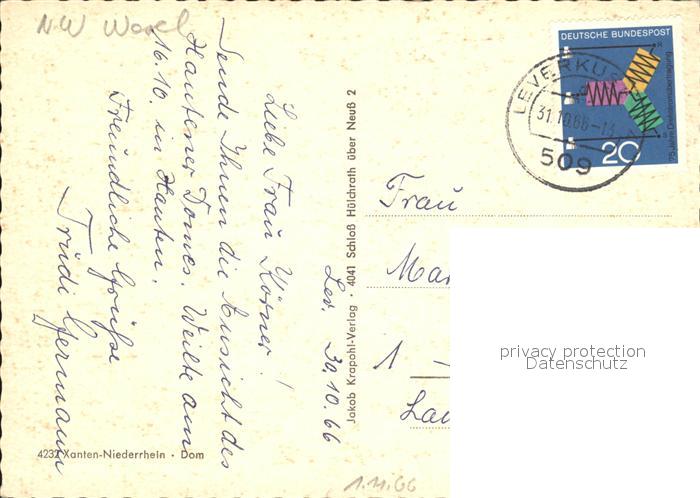 NW Wesel
Lev. 30.10.66
Liebe Frau Körner!
Sende Ihnen die Ansicht des
Xantener Domes. Weilte am
16.10. in Xanten.
Freundliche Grüße
Trudi Germann
4232 Xanten-Niederrhein · Dom
Jakob Krapohl-Verlag · 4041 Schloß Hülchrath über Neuß 2
DEUTSCHE BUNDESPOST
R
S
75 Jahre Drehstromübertragung
20
LEVERKUS
31.10.66-13
509
Frau
Mar
1
Lau
privacy protection
Datenschutz
1.11.66